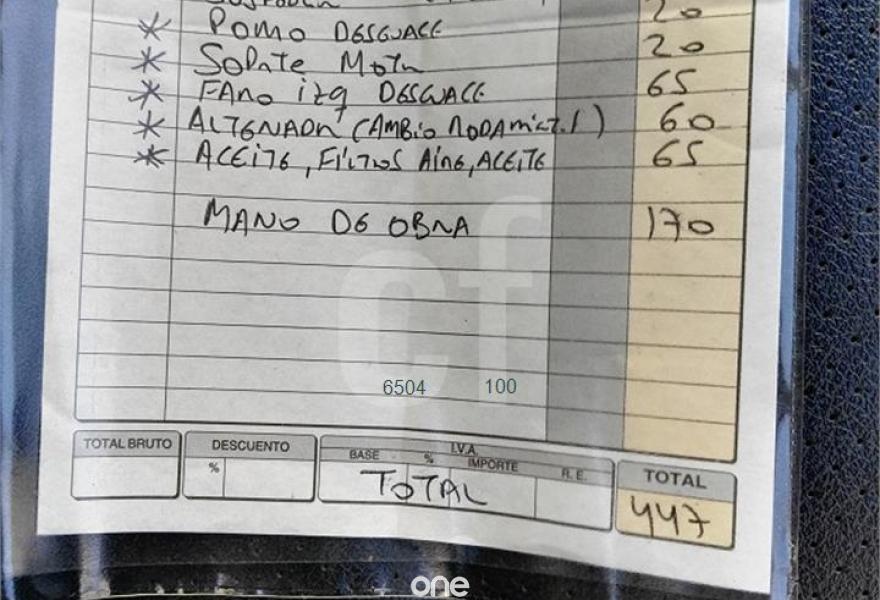 20
* POMO DESGUACE 20
* SOPORTE MOTOR
* FARO izq DESGUACE 65
* ALTERNADOR (CAMBIO RODAMIENT.) 60
* ACEITE, FILTROS AIRE, ACEITE 65
MANO DE OBRA 170
cf
6504 100
TOTAL BRUTO DESCUENTO I.V.A. TOTAL
% BASE % IMPORTE R.E.
TOTAL 447
one